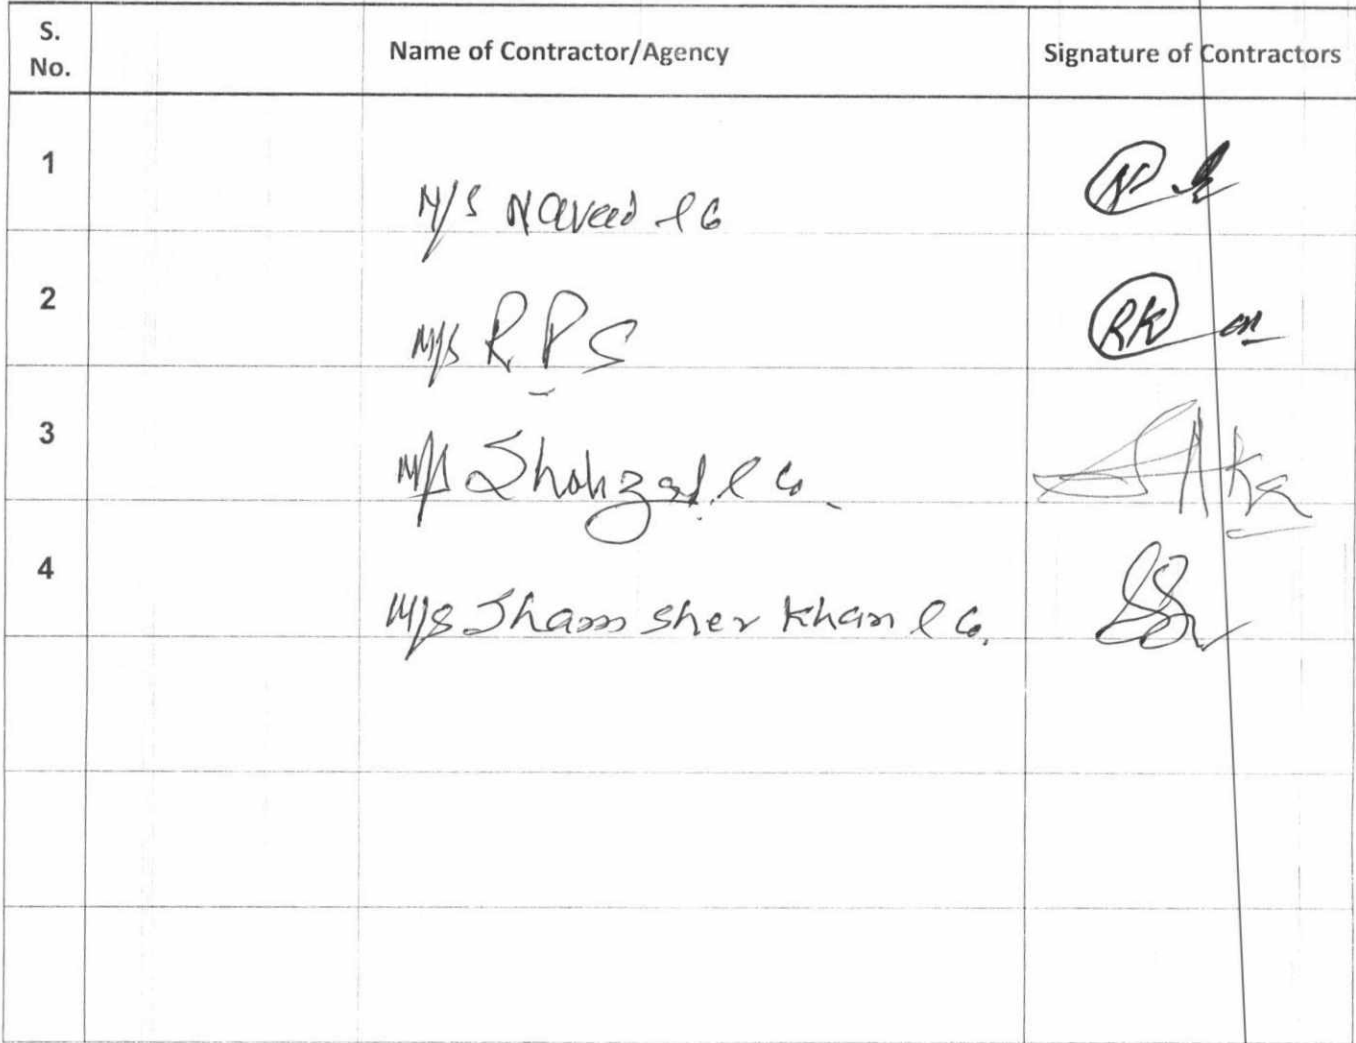 S. No. Name of Contractor/Agency Signature of Contractors
1 M/S Naveed & Co
2 M/S R P S RK
3 M/S Shahzad & Co.
4 M/S Sham sher Khan & Co.